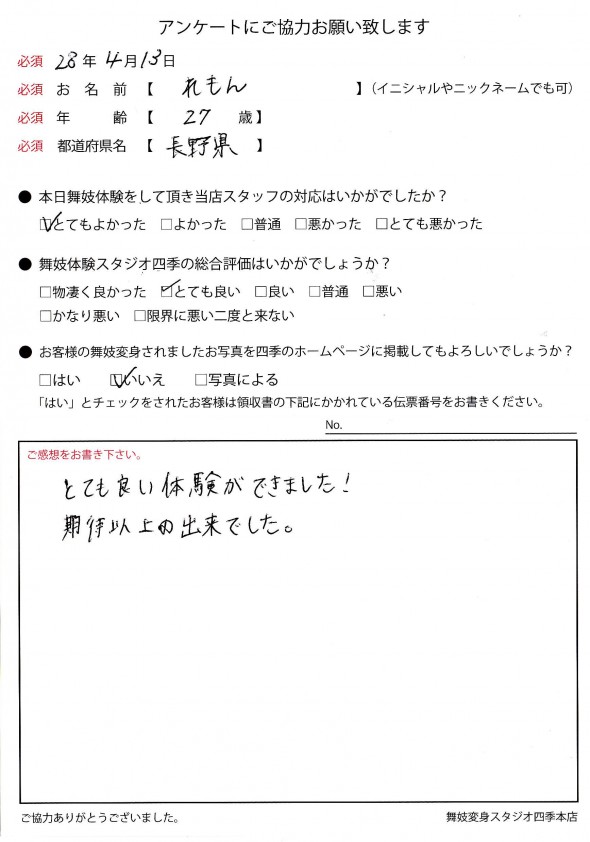 アンケートにご協力お願い致します
必須 28年 4月13日
必須 お名前 【 れもん 】（イニシャルやニックネームでも可）
必須 年齢 【 27 歳】
必須 都道府県名 【 長野県 】
● 本日舞妓体験をして頂き当店スタッフの対応はいかがでしたか？
☑とてもよかった □よかった □普通 □悪かった □とても悪かった
● 舞妓体験スタジオ四季の総合評価はいかがでしょうか？
□物凄く良かった ☑とても良い □良い □普通 □悪い
□かなり悪い □限界に悪い二度と来ない
● お客様の舞妓変身されましたお写真を四季のホームページに掲載してもよろしいでしょうか？
□はい ☑いいえ □写真による
「はい」とチェックをされたお客様は領収書の下記にかかれている伝票番号をお書きください。
No.
ご感想をお書き下さい。
とても良い体験ができました！
期待以上の出来でした。
ご協力ありがとうございました。 舞妓変身スタジオ四季本店